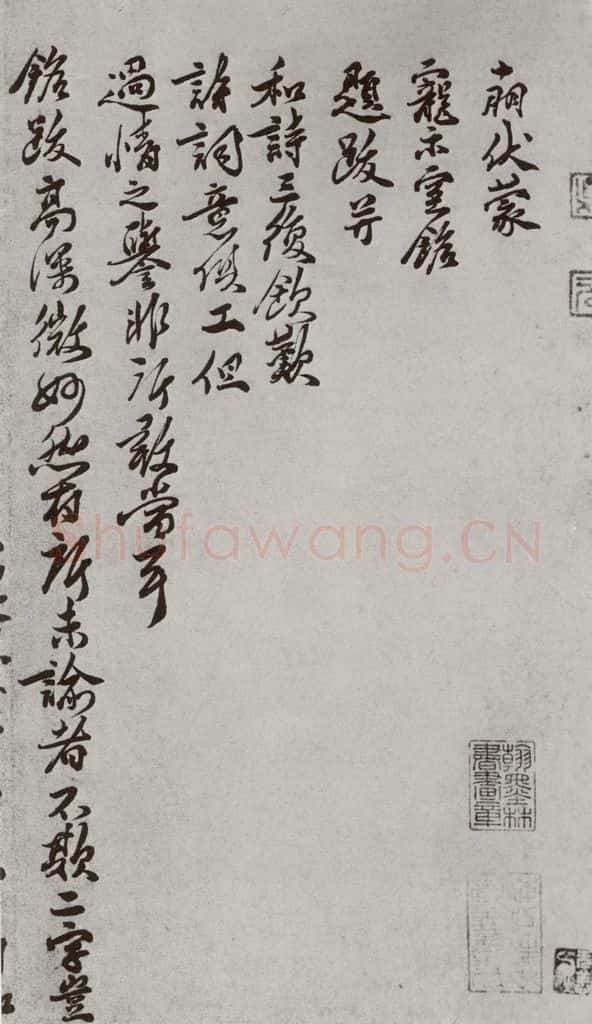 十朋伏蒙
寵示室銘
題跋并
和詩三復欽歎
詩詞意俱工但
過情之譽非所敢當耳
銘跋高深微妙然有所未諭者不欺二字豈
翰墨林
書畫章
Shufawang.CN